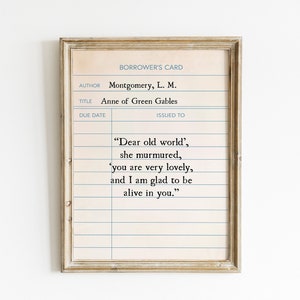 BORROWER'S CARD
AUTHOR Montgomery, L. M.
TITLE Anne of Green Gables
DUE DATE ISSUED TO
“Dear old world’,
she murmured,
‘you are very lovely,
and I am glad to be
alive in you.”